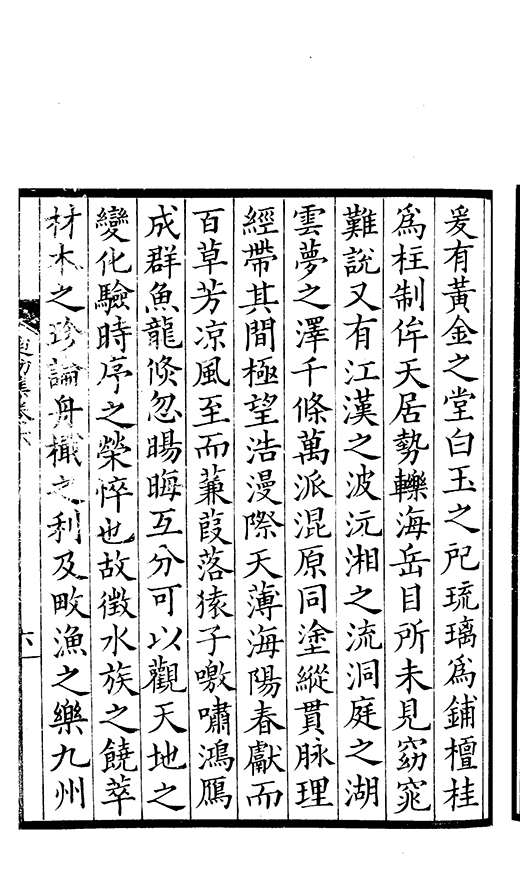 爰有黃金之堂白玉之戺琉璃爲鋪檀桂
爲柱制侔天居勢轢海岳目所未見窈窕
難說又有江漢之波沅湘之流洞庭之湖
雲夢之澤千條萬派混原同塗縱貫脉理
經帶其間極望浩漫際天薄海陽春獻而
百草芳凉風至而蒹葭落猿子噭嘯鴻鴈
成群魚龍倏忽暘晦互分可以觀天地之
變化驗時序之榮悴也故徵水族之饒萃
材木之珍論舟檝之利及畋漁之樂九州
六